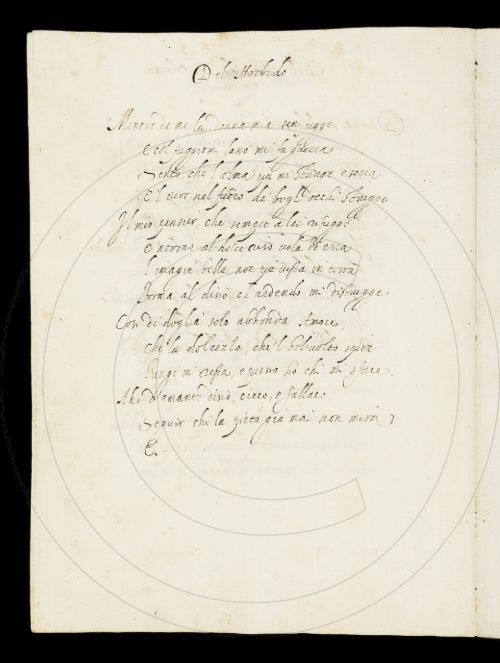 Del Morbido
Mentre da me la donna mia sen fugge
E col fuggirmi lasso mi fa guerra
Sento, che l'alma più mi stringe e serra
E'l cuor nel fuoco de' begl'occhi strugge
Il mio pensier, che sempre a lei rifugge
E intorno al dolce viso vola ed erra
L'imagin bella non più vista in terra
Forma al divo, et ardendo mi distrugge
Così di doglia solo abbonda Amore
Che la dolcezza, che'l bel volto spira
Lungi mi resta, e presso ho chi mi sface
Ahi d'amante cieco, e fallace
Seguir chi la pietà già mai non mira